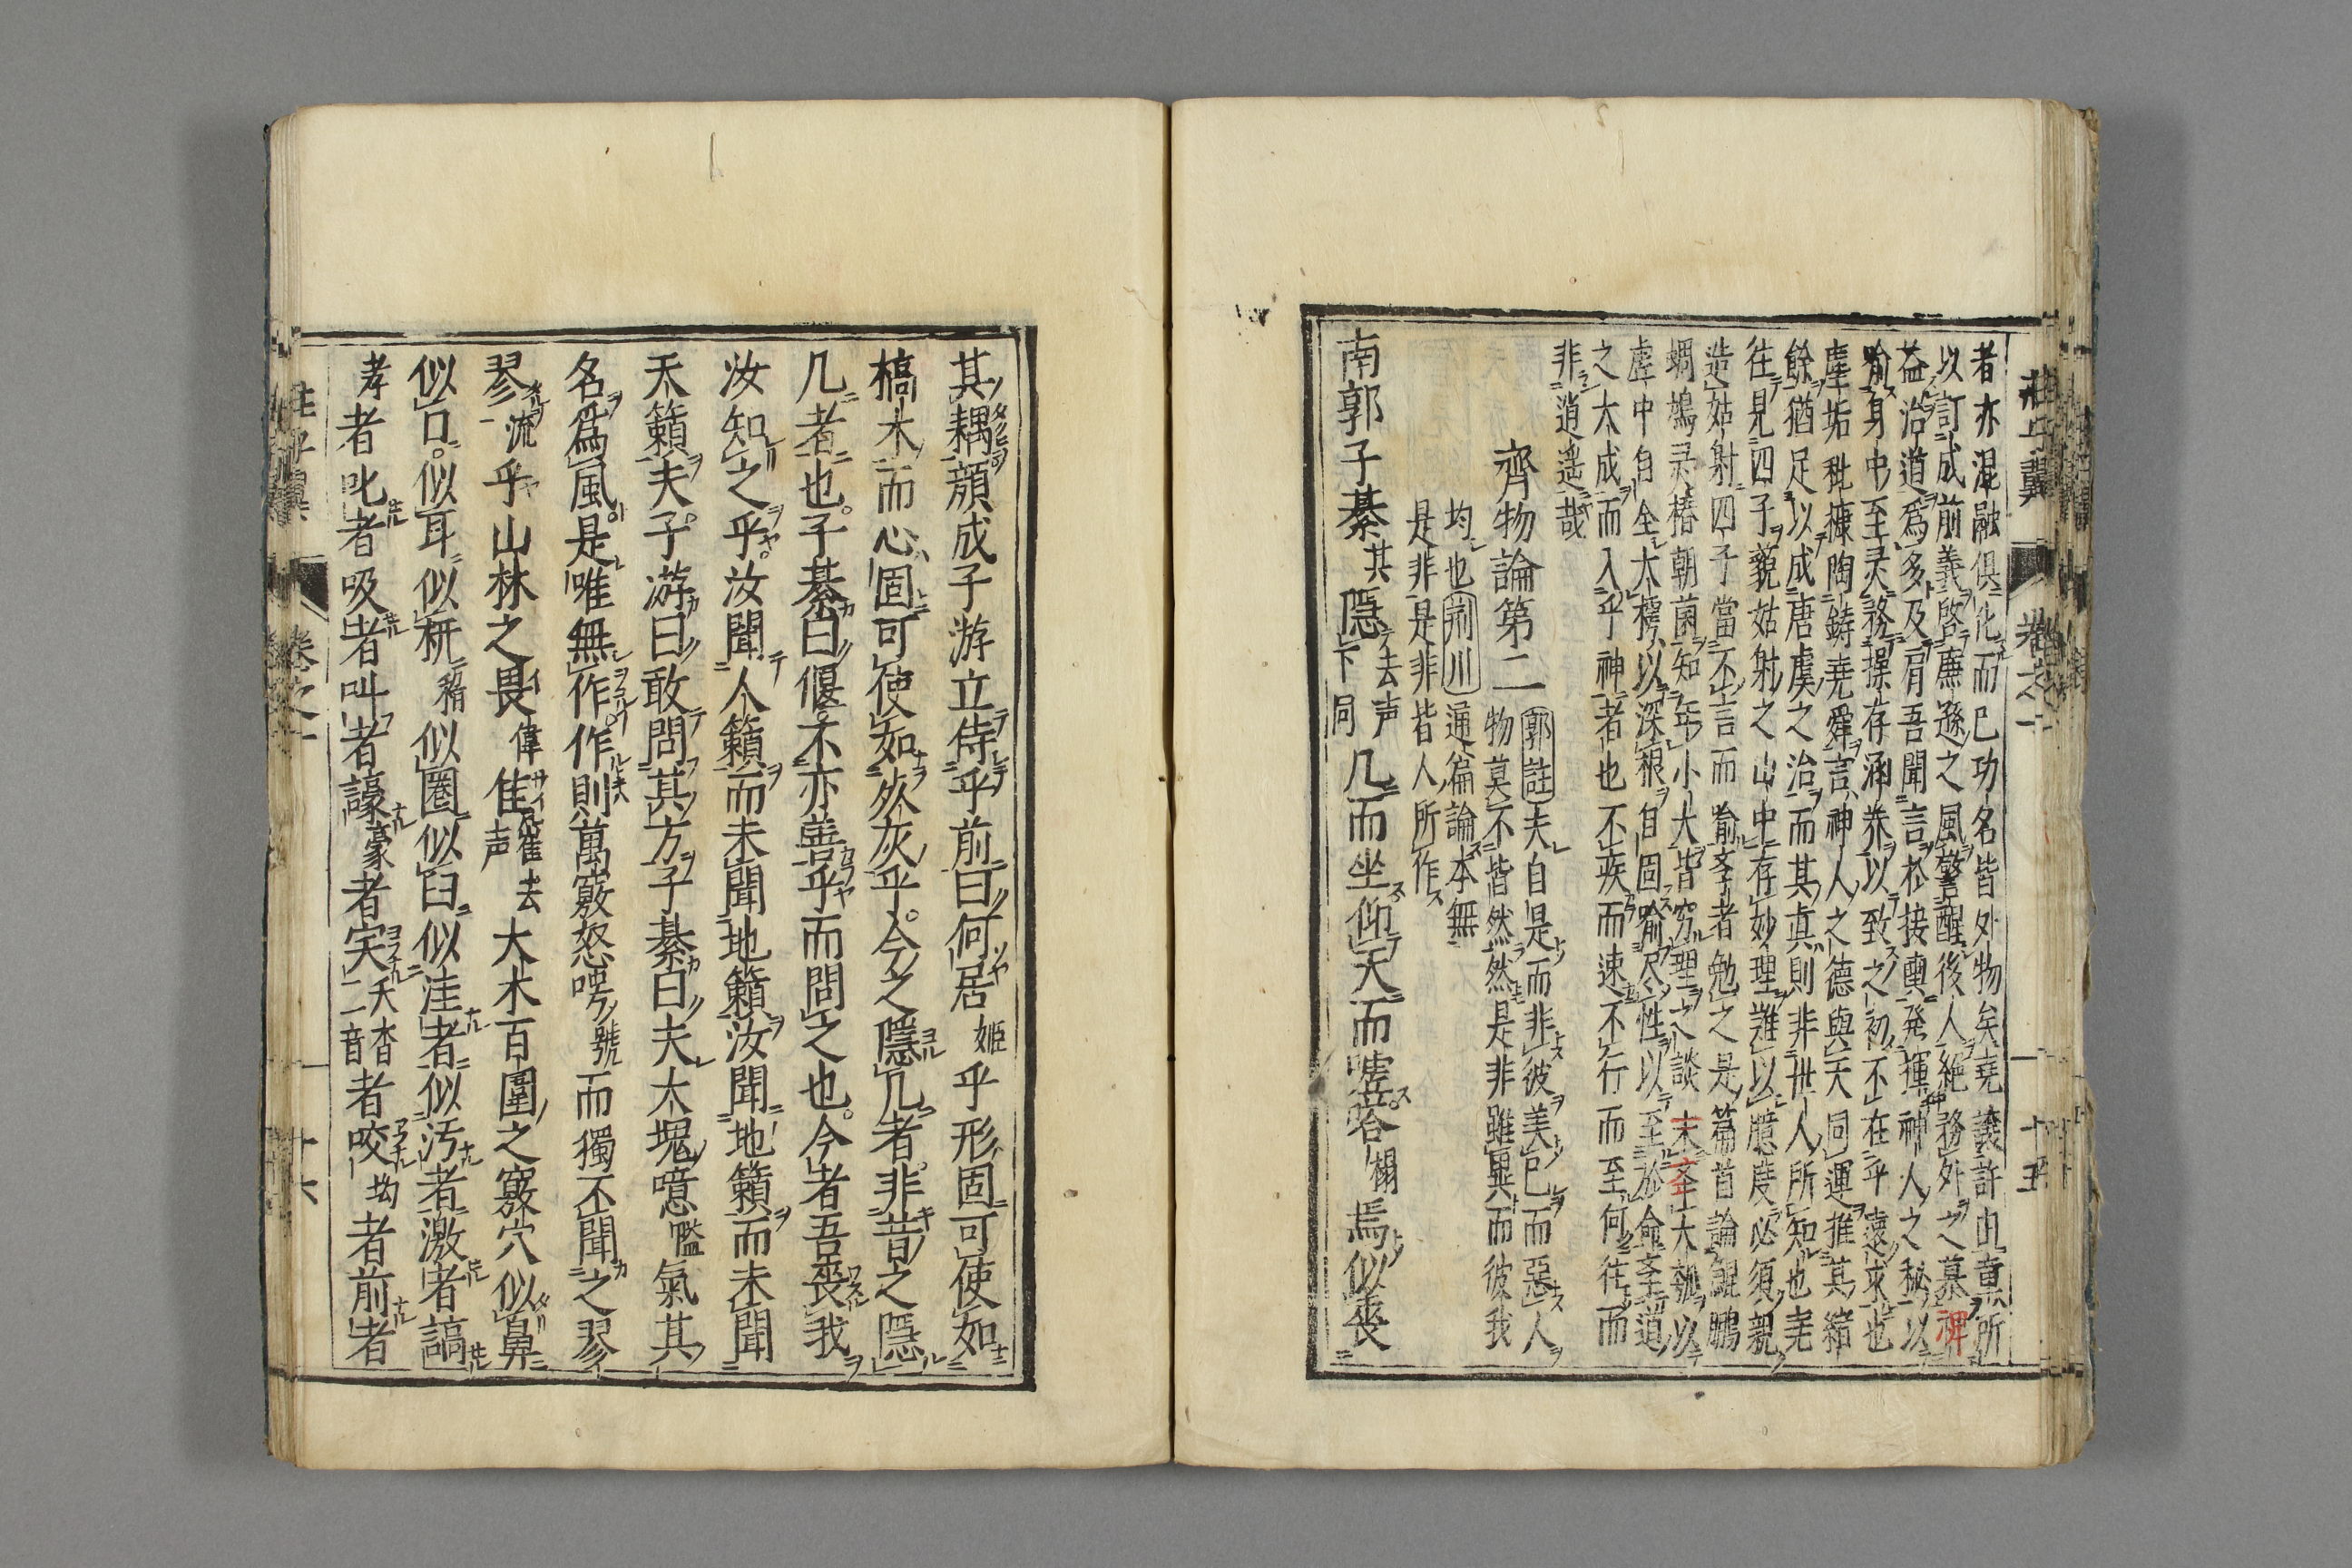 莊子翼 卷之一 十五
者亦混融俱化而已功名皆外物矣堯讓許由章所
以訂成前義啓廉遜之風警醒後人絕務外之慕裨
益治道爲多及肩吾聞言於接輿發揮神人之秘以
喻身中至灵務操存涵养以致之初不在乎遠求也
塵垢秕糠陶鑄堯舜言神人之德與天同運推其緒
餘猶足以成唐虞之治而其真則非世人所知也堯
往見四子藐姑射之山中存妙理難以臆度必須親
造姑射四子當不言而喻孝者勉之是篇首論鯤鵬
蜩鳩灵椿朝菌知年小大皆窮理之談末至大瓠以
虛中自全大樗以深根自固喻尽性以至於命至道
之大成而入乎神者也不疾而速不行而至何往而
非逍遥哉
齊物論第二
郭註夫自是而非彼美己而惡人
物莫不皆然然是非雖異而彼我
均也荆川通篇論本無
是非是非皆人所作
南郭子綦其隱去声下同几而坐仰天而嘘荅榻焉似喪
其耦顔成子游立侍乎前曰何居姬乎形固可使如
槁木而心固可使如然灰乎今之隱几者非昔之隱
几者也子綦曰偃不亦善乎而問之也今者吾喪我
汝知之乎汝聞人籟而未聞地籟汝聞地籟而未聞
天籟夫子游曰敢問其方子綦曰夫大塊噫隘氣其
名爲風是唯無作作則萬竅怒呺號而獨不聞之翏
翏流乎山林之畏偉隹崔去声大木百圍之竅穴似鼻
似口似耳似枅稽似圈似臼似洼者似汚者激者謞
孝者叱者吸者叫者譹豪者宎夭杳二音者咬坳者前者
莊子翼 卷之一 十六